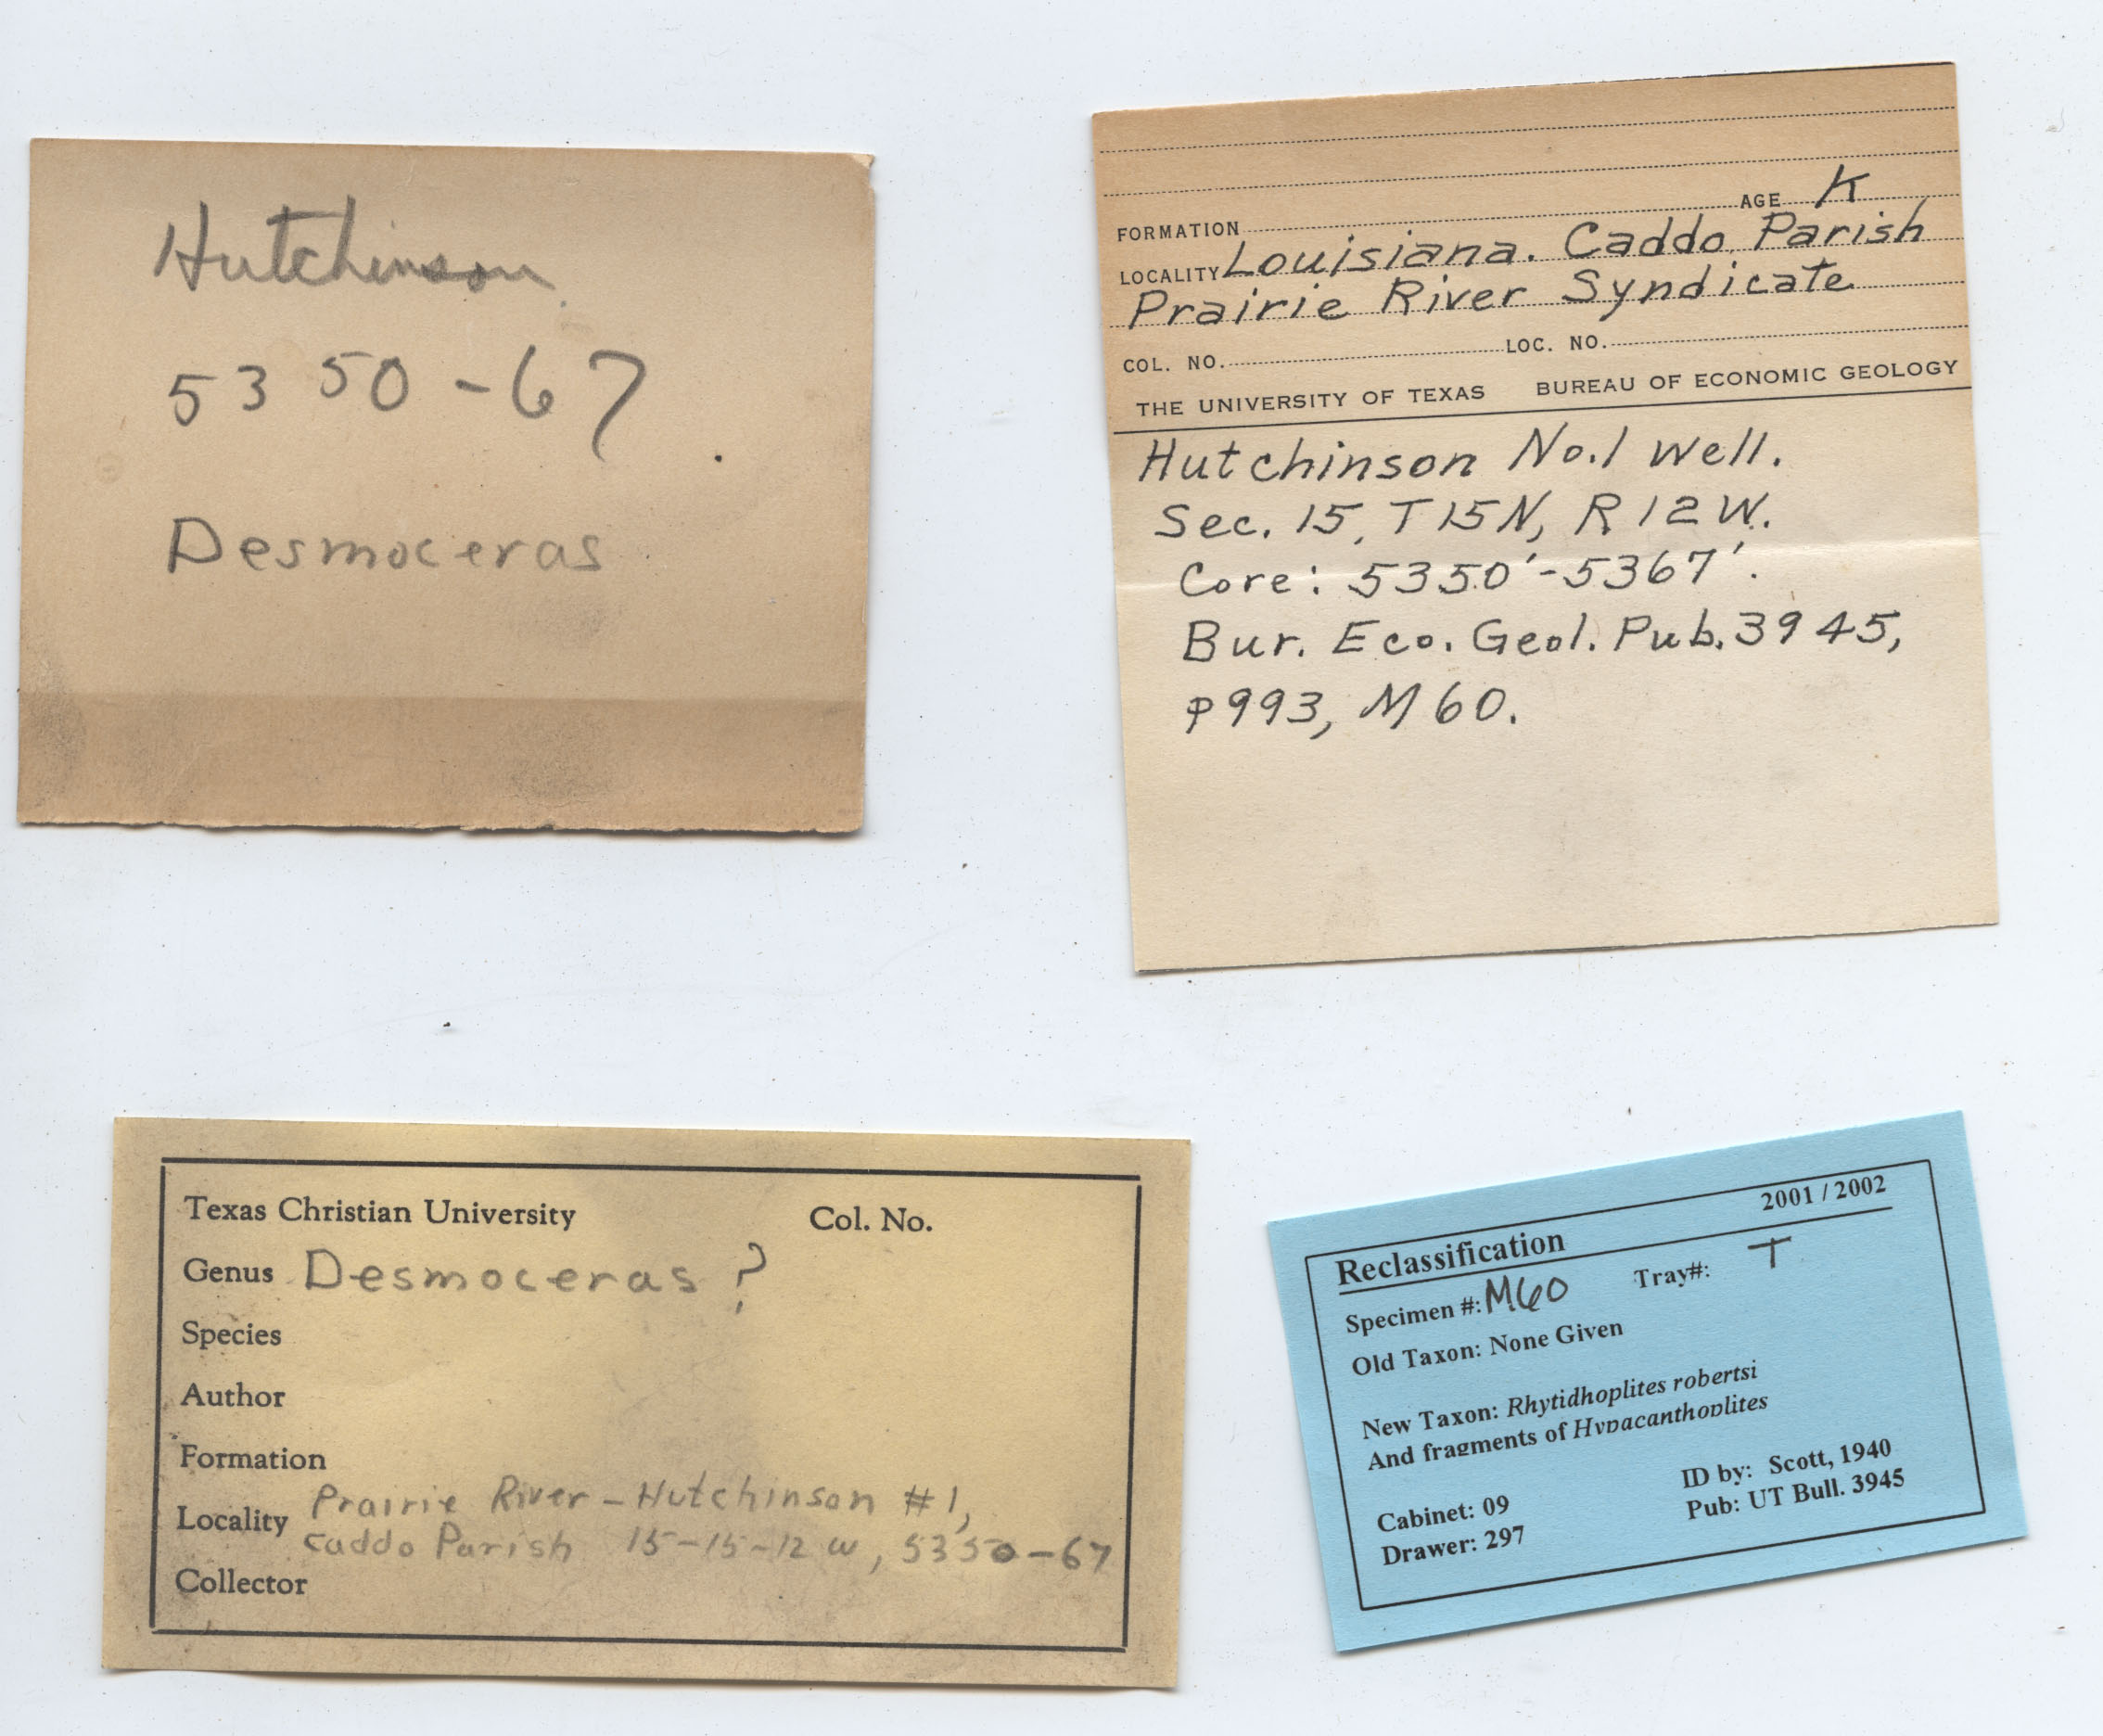 Hutchinson
5350-67
Desmoceras
FORMATION AGE K
LOCALITY Louisiana. Caddo Parish
Prairie River Syndicate
COL. NO. LOC. NO.
THE UNIVERSITY OF TEXAS BUREAU OF ECONOMIC GEOLOGY
Hutchinson No.1 well.
Sec. 15, T15N, R12W.
Core: 5350'-5367'.
Bur. Eco. Geol. Pub. 3945,
p993, M60.
Texas Christian University Col. No.
Genus Desmoceras ?
Species
Author
Formation
Locality Prairie River-Hutchinson #1,
Caddo Parish 15-15-12 W, 5350-67
Collector
2001 / 2002
Reclassification
Specimen #: M60 Tray#: T
Old Taxon: None Given
New Taxon: Rhytidhoplites robertsi
And fragments of Hypacanthoplites
ID by: Scott, 1940
Cabinet: 09 Pub: UT Bull. 3945
Drawer: 297